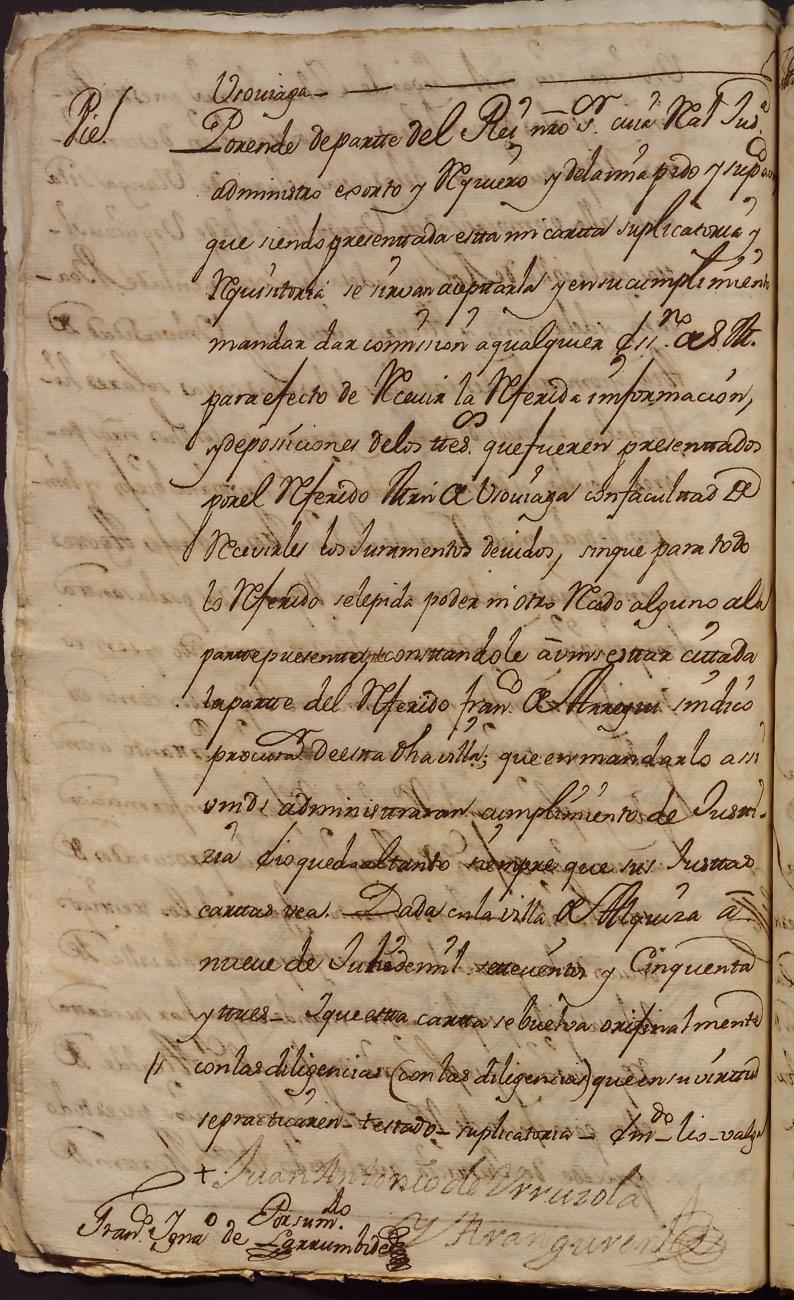 Usouiaga
Pie. Porende de partte del Rei nro sr. cuia Real Jusa.
administro exorto y Requiero y dela mia pido y supco
que siendo presenttada estta mi cartta suplicatoria y
Requisitoria se sirvan azeptarla y en su cumplimiento
mandar dar comision a qualquier Essno. de S. M.
para efecto de Recevir la Referida informacion,
y deposiciones delos ttesos. que fueren presenttados
por el Referido Mrn de Usouiaga con facultad de
Recevirles los Juramentos devidos, sin que para todo
lo Referido sele pida poder ni otro Recado alguno ala
partte presenttte, consttandole avinse esttar cittada
la partte del Referido Francо de Arregui sindico
procurar. de estta dha villa; que en mandarlo assi
vmds administraran cumplimiento de Justti-
zia Eio quedo al tanto siempre que sus Justtas
carttas vea. Dada en la villa de Alquiza a
nueve de Julio de mil settecientos y Cinquenta
y ttres Y que estta cartta se buelva orijinalmente
// con las diligencias (con las diligencias) que en su virttud
se practicaren testado suplicatoria Emdo lio valga
+ Juan Antonio de Urruzola
y Aranguren
Por su mdo.
Frando Ignao de Larrumbide